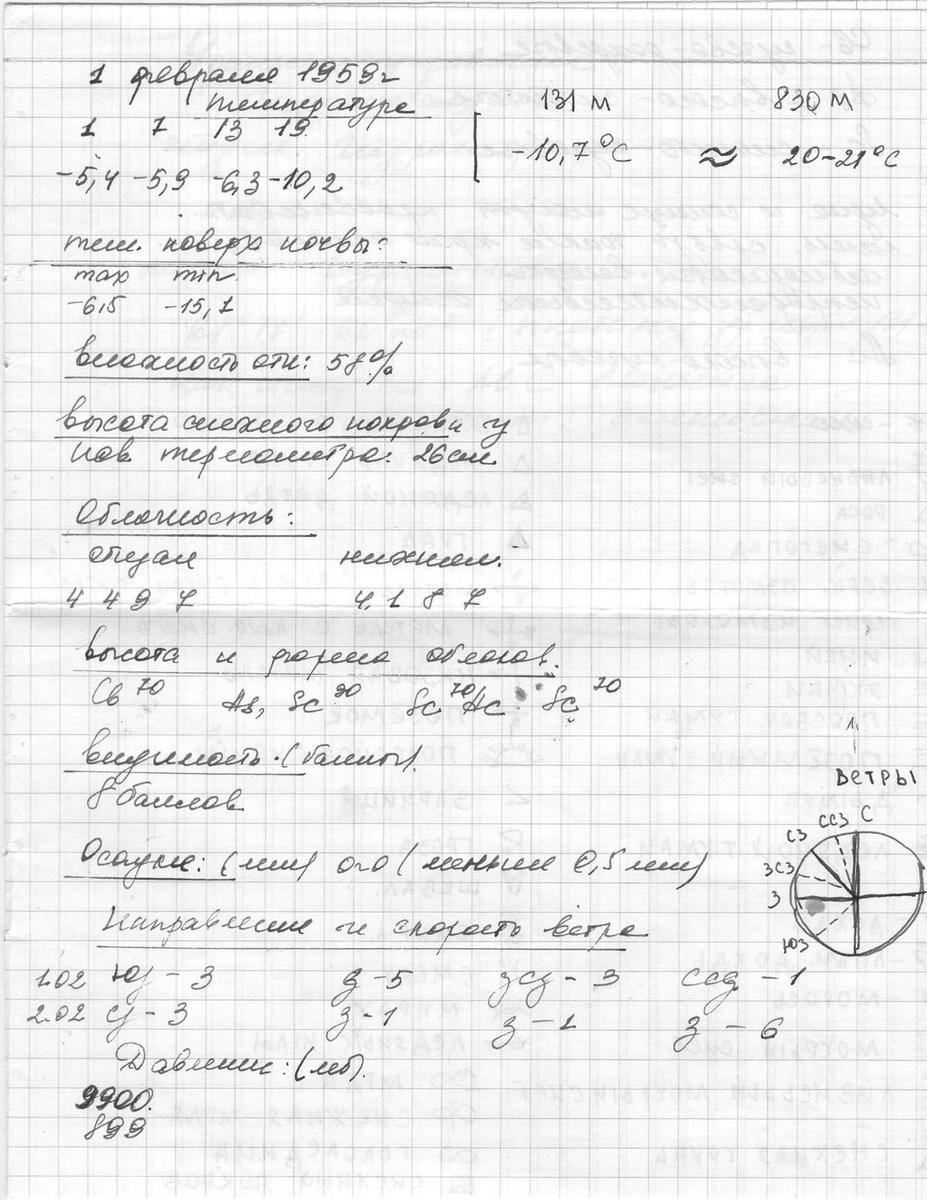 1 февраля 1959г
температура
1 7 13 19
-5,4 -5,9 -6,3 -10,2
131 м 830 м
-10,7°С ≈ 20-21°С
тем. поверх почвы:
max min
-6,5 -15,1
влажность отн: 58%
высота снежного покрова у
пов термометра: 26см
Облачность:
общая нижняя.
4 4 9 7 4 1 8 7
высота и форма облаков.
Cb 70 As, Sc 90 Sc 70 Ac Sc 70
видимость (баллы).
8 баллов
Осадки: (мм) 0,0 (меньше 0,5 мм)
Направление и скорость ветра
1.02 ЮЗ - 3 З - 5 ЗСЗ - 3 ССЗ - 1
2.02 СЗ - 3 З - 1 З - 1 З - 6
Давление: (мб).
9900.
899
ВЕТРЫ
С
ССЗ
СЗ
ЗСЗ
З
ЮЗ